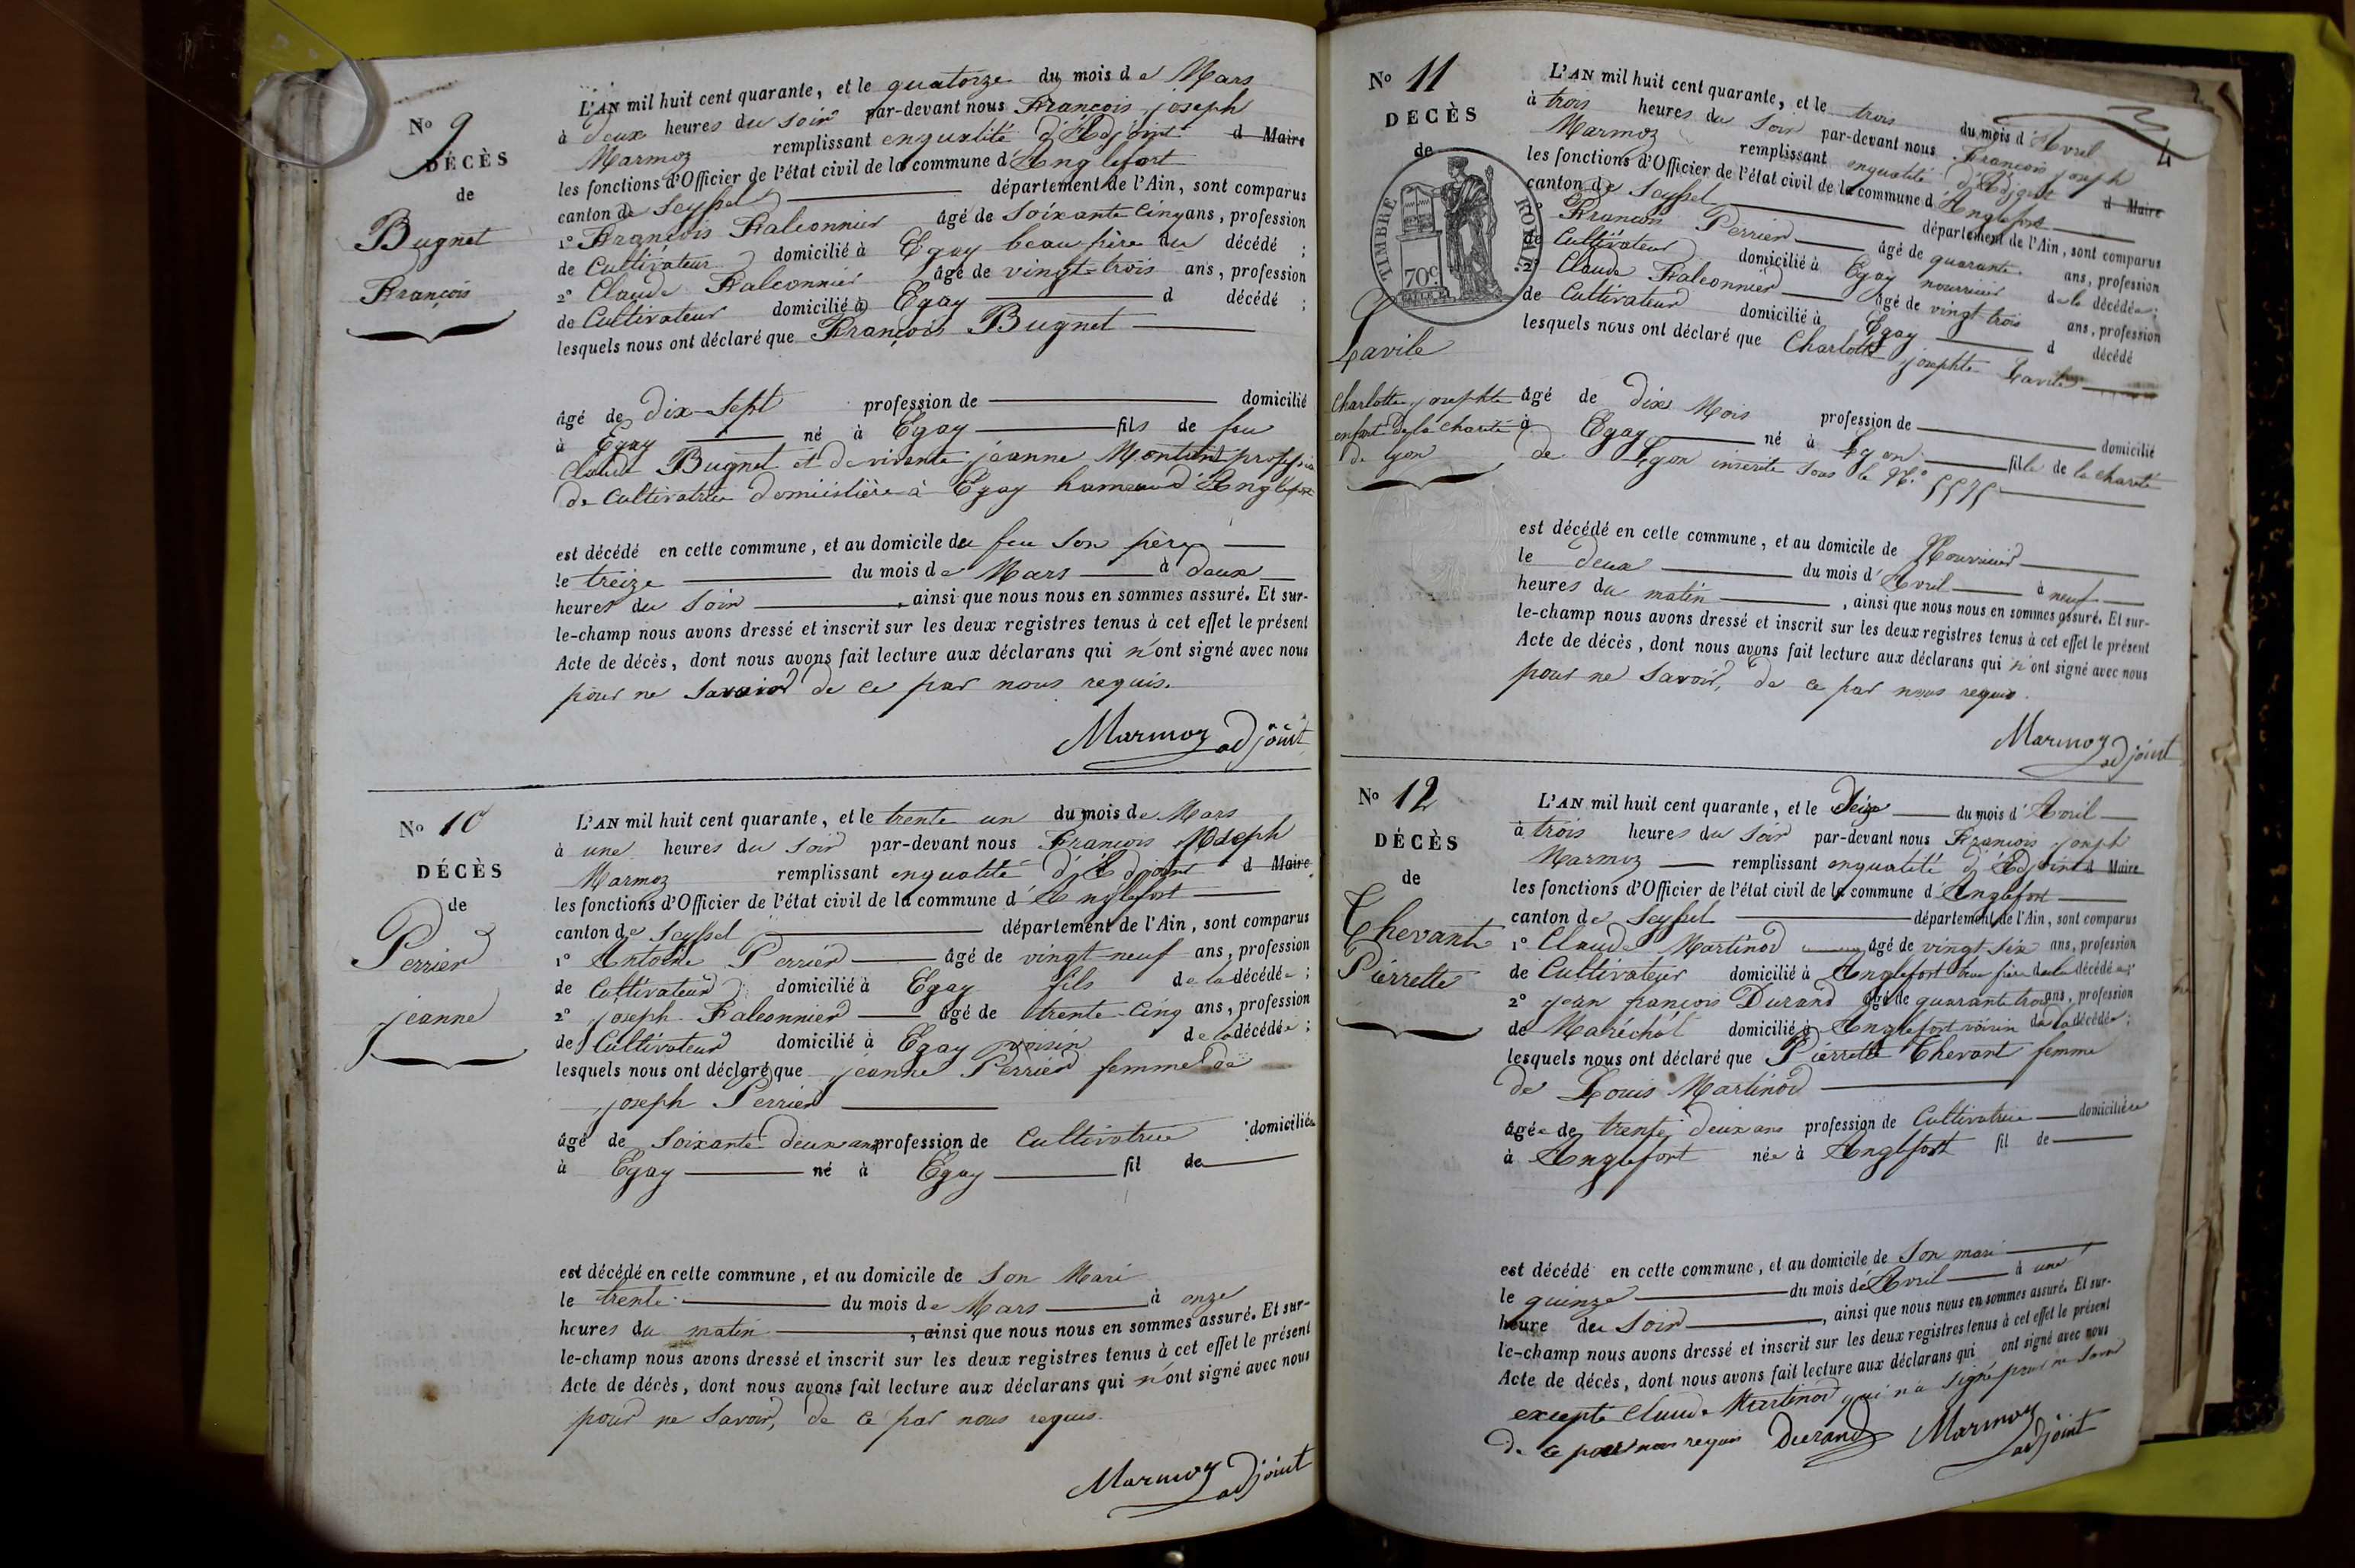 No 9
DÉCÈS
de
Bugnet
François
L'AN mil huit cent quarante, et le quatorze du mois de Mars
à deux heures du soir par-devant nous François joseph
Marmoz remplissant enqualité d'Adjoint d Maire
les fonctions d'Officier de l'état civil de la commune d'Anglefort
canton de Seyssel département de l'Ain, sont comparus
1° François Falconnier âgé de Soixante Cinq ans, profession
de Cultivateur domicilié à Egay beau père du décédé ;
2° Claude Falconnier âgé de vingt-trois ans, profession
de Cultivateur domicilié à Egay d décédé ;
lesquels nous ont déclaré que François Bugnet
âgé de dix-Sept profession de domicilié
à Egay né à Egay fils de feu
Claude Bugnet et de vivante jeanne Montant profession
de Cultivatrice domicilière à Egay hameau d'Anglefort
est décédé en cette commune, et au domicile de feu Son père
le treize du mois de Mars à deux
heures du Soir , ainsi que nous nous en sommes assuré. Et sur-
le-champ nous avons dressé et inscrit sur les deux registres tenus à cet effet le présent
Acte de décès, dont nous avons fait lecture aux déclarans qui n'ont signé avec nous
pour ne Savoir de ce par nous requis.
Marmoz adjoint
No 10
DÉCÈS
de
Perrier
jeanne
L'AN mil huit cent quarante, et le trente un du mois de Mars
à une heures du soir par-devant nous François Joseph
Marmoz remplissant enqualité d'Adjoint d Maire
les fonctions d'Officier de l'état civil de la commune d'Anglefort
canton de Seyssel département de l'Ain, sont comparus
1° Antoine Perrier âgé de vingt-neuf ans, profession
de Cultivateur domicilié à Egay fils de la décédée ;
2° joseph Falconnier âgé de trente-Cinq ans, profession
de Cultivateur domicilié à Egay voisin de la décédée ;
lesquels nous ont déclaré que jeanne Perrier femme de
joseph Perrier
âgé de Soixante deux ans profession de Cultivatrice domiciliée
à Egay né à Egay fil de
est décédé en cette commune, et au domicile de Son Mari
le trente du mois de Mars à onze
heures du matin , ainsi que nous nous en sommes assuré. Et sur-
le-champ nous avons dressé et inscrit sur les deux registres tenus à cet effet le présent
Acte de décès, dont nous avons fait lecture aux déclarans qui n'ont signé avec nous
pour ne Savoir, de ce par nous requis.
Marmoz adjoint
No 11
DÉCÈS
de
TIMBRE ROYAL
70c
Lavile
Charlotte josephte
enfant de la Charité
de lyon
4
L'AN mil huit cent quarante, et le trois du mois d'Avril
à trois heures du Soir par-devant nous François joseph
Marmoz remplissant enqualité d'Adjoint d Maire
les fonctions d'Officier de l'état civil de la commune d'Anglefort
canton de Seyssel département de l'Ain, sont comparus
1° François Perrier âgé de quarante ans, profession
de Cultivateur domicilié à Egay nourricier de la décédée ;
2° Claude Falconnier âgé de vingt-trois ans, profession
de Cultivateur domicilié à Egay d décédé
lesquels nous ont déclaré que Charlotte josephte Lavile
âgé de dix Mois profession de domicilié
à Egay né à Lyon fille de la charité
de Lyon inscrite sous le N° 5575
est décédé en cette commune, et au domicile de Nourricier
le deux du mois d'Avril à neuf
heures du matin , ainsi que nous nous en sommes assuré. Et sur-
le-champ nous avons dressé et inscrit sur les deux registres tenus à cet effet le présent
Acte de décès, dont nous avons fait lecture aux déclarans qui n'ont signé avec nous
pour ne Savoir, de ce par nous requis.
Marmoz adjoint
No 12
DÉCÈS
de
Thevant
Pierrette
L'AN mil huit cent quarante, et le Seize du mois d'Avril
à trois heures du Soir par-devant nous François joseph
Marmoz remplissant enqualité d'Adjoint d Maire
les fonctions d'Officier de l'état civil de la commune d'Anglefort
canton de Seyssel département de l'Ain, sont comparus
1° Claude Martinod âgé de vingt-Six ans, profession
de Cultivateur domicilié à Anglefort beau frère de la décédée ;
2° jean françois Durand âgé de quarante trois ans, profession
de Maréchal domicilié à Anglefort voisin de la décédée ;
lesquels nous ont déclaré que Pierrette Thevant femme
de Louis Martinod
âgée de trente deux ans profession de Cultivatrice domicilière
à Anglefort née à Anglefort fil de
est décédé en cette commune, et au domicile de Son mari
le quinze du mois d'Avril à une
heure du Soir , ainsi que nous nous en sommes assuré. Et sur-
le-champ nous avons dressé et inscrit sur les deux registres tenus à cet effet le présent
Acte de décès, dont nous avons fait lecture aux déclarans qui ont signé avec nous
excepté Claude Martinod qui n'a Signé pour ne Savoir
de ce par nous requis Durand Marmoz adjoint